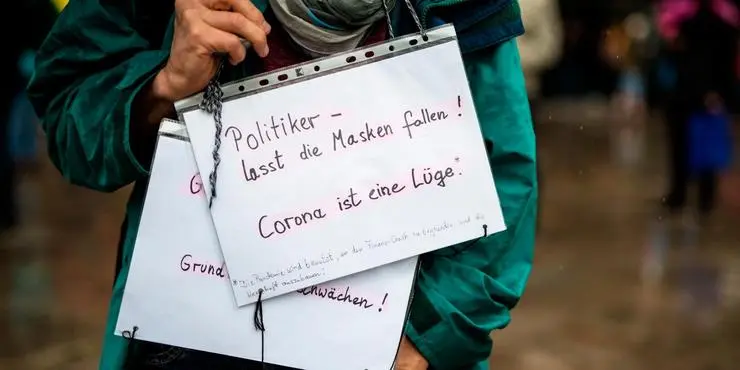 Politiker –
lasst die Masken fallen!
Corona ist eine Lüge.*
*Die Pandemie wird benutzt, um den Finanz-Crash zu begründen und die
G
Grund
chwächen!